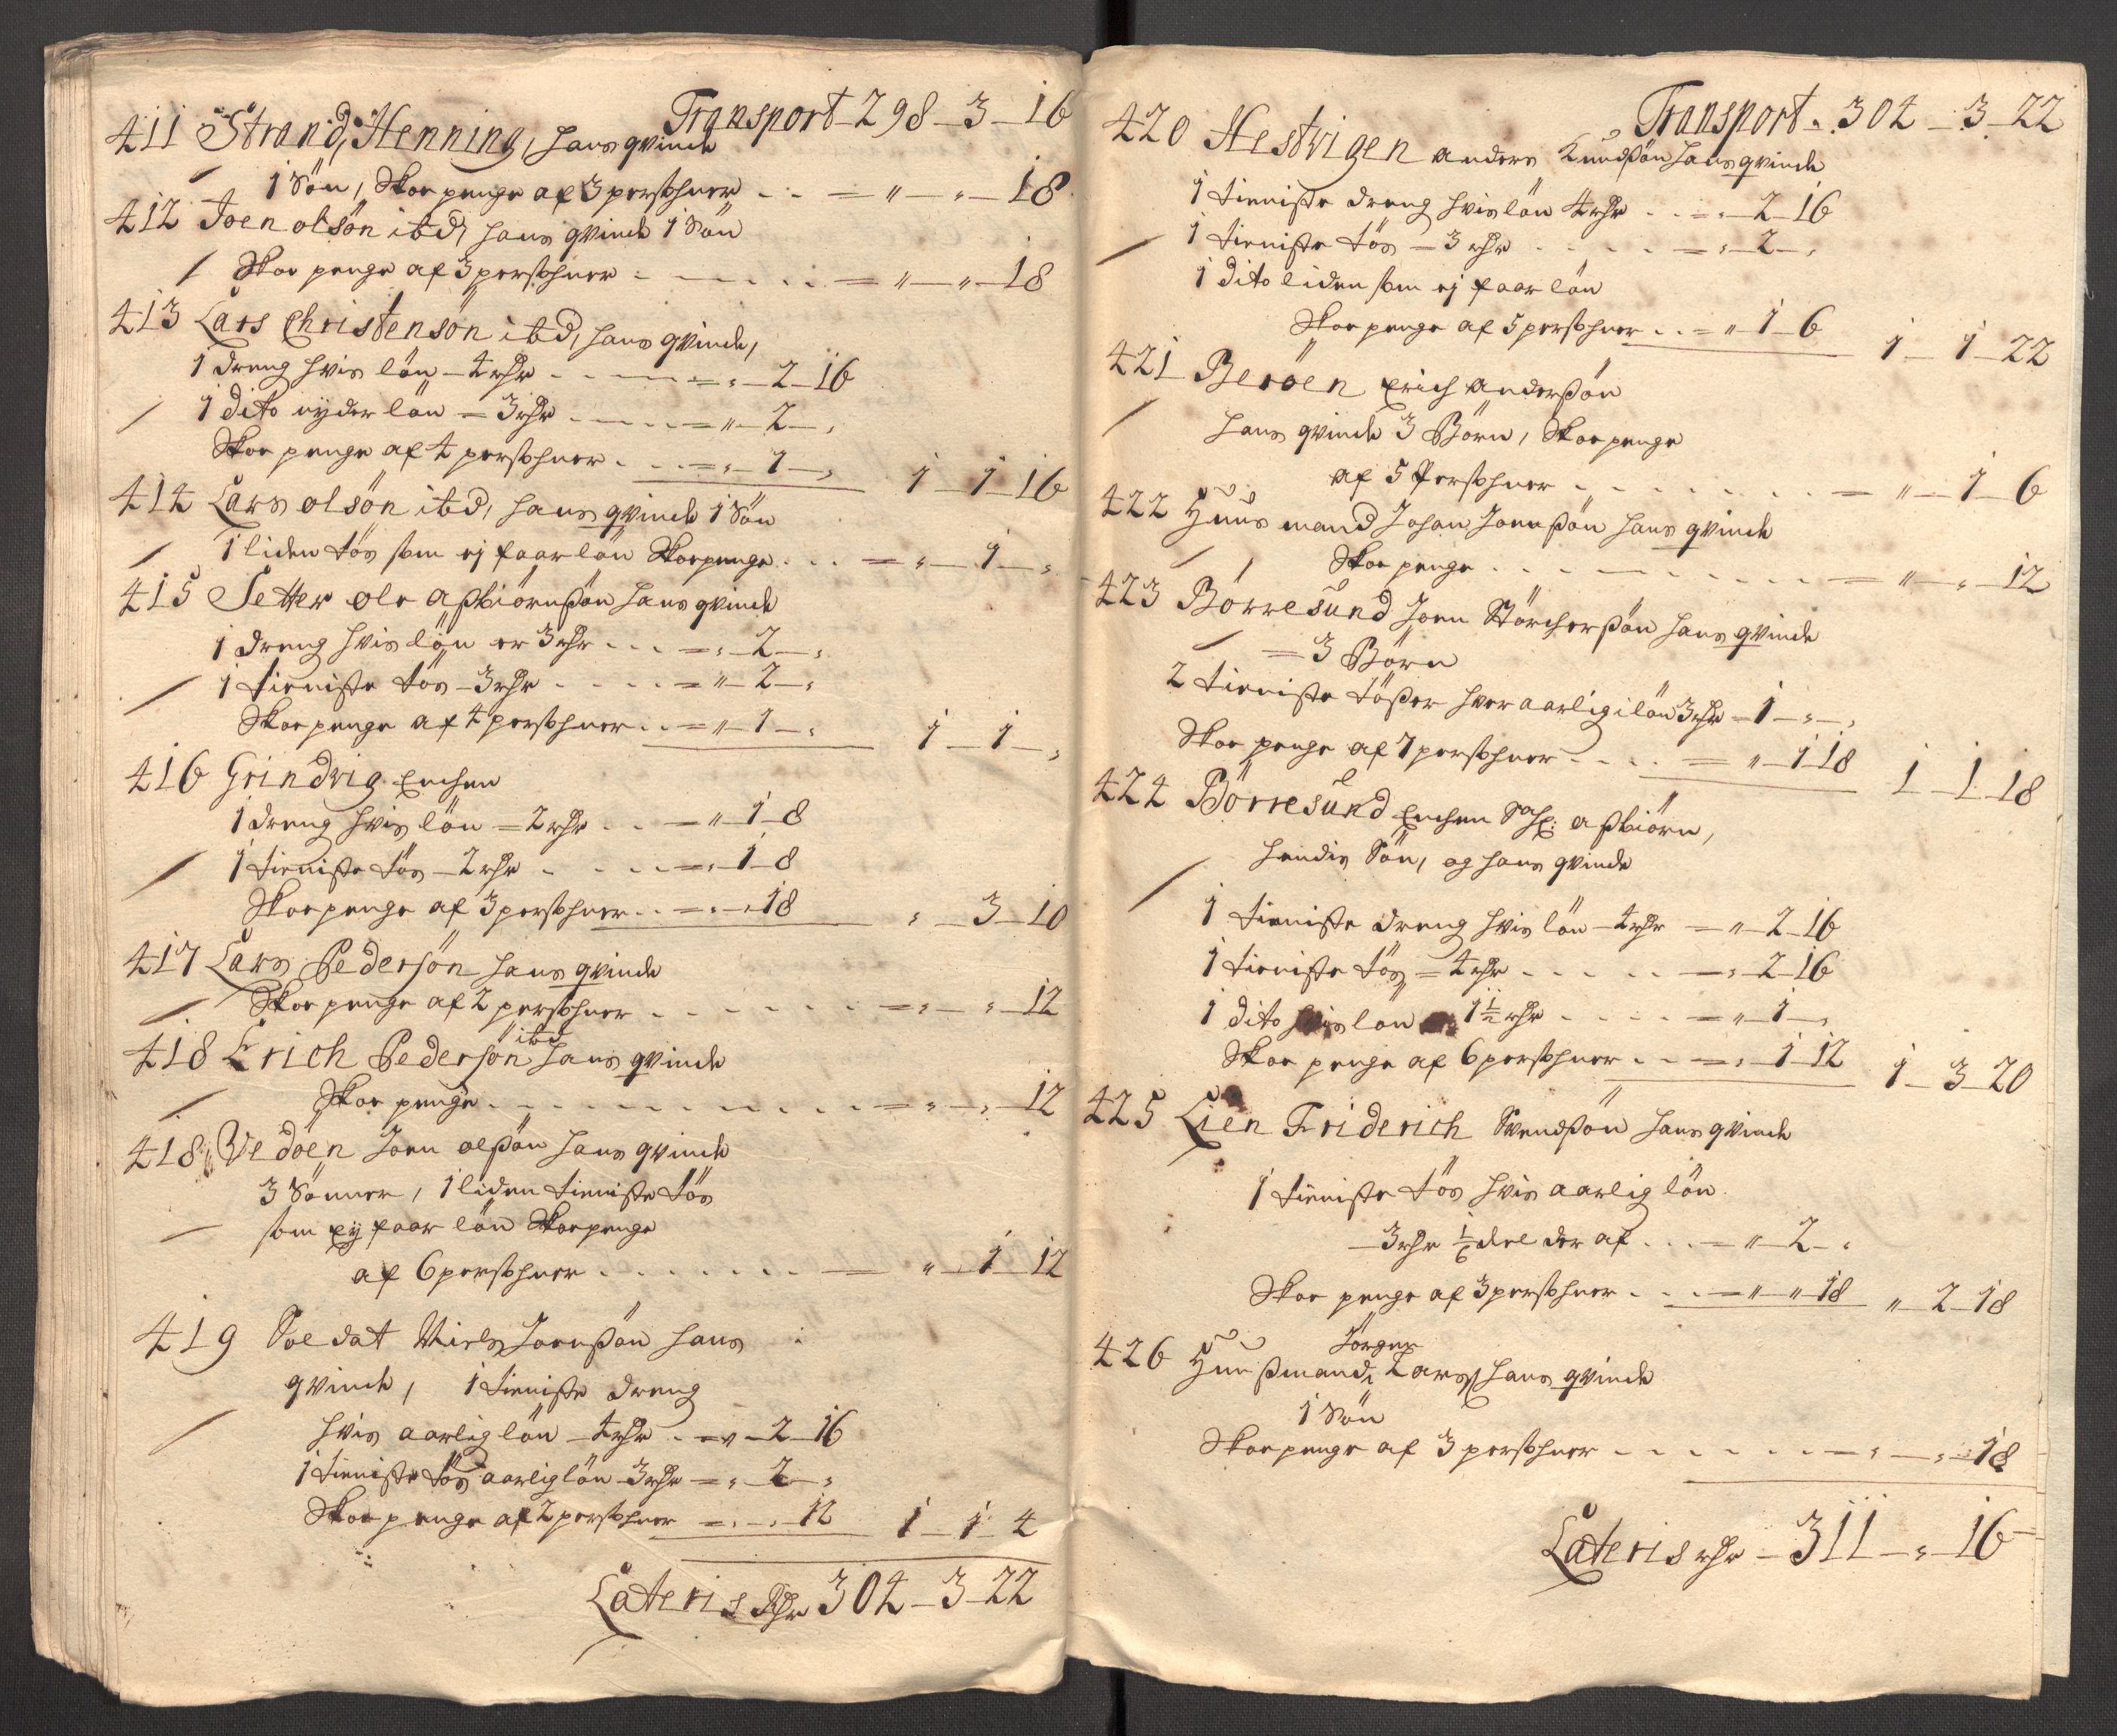 Transport - 298 - 3 - 16
411 Strand, Henning, hans qvinde
1 Sön, Skoe penge af 3 persohner . . = " - " - 18
412 Joen olsön ibd, hans qvinde 1 Sön
Skoe penge af 3 persohner . . . = " - " - 18
413 Lars Christensön ibd, hans qvinde,
1 dreng hvis lön - 4 rdr . . . = " - 2 - 16
1 dito nyder lön = 3 rdr . . . = " - 2 - "
Skoe penge af 4 persohner . . . = " - 1 - " 1 - 1 - 16
414 Lars olsön ibd, hans qvinde 1 Sön
1 liden tös som ej faar lön Skoepenge . . . = " - 1 - "
415 Setter ole Assbiörnsön hans qvinde
1 dreng hvis lön er 3 rdr . . . = " - 2 - "
1 tieniste tös - 3 rdr . . . . = " - 2 - "
Skoe penge af 4 persohner . . = " - 1 - " 1 - 1 - "
416 Grindvig Enchen
1 dreng hvis lön = 2 rdr . . = " - 1 - 8
1 tieniste tös - 2 rdr . . . . = " 1 - 8
Skoe penge af 3 persohner . . = " - " 18 " - 3 - 10
417 Lars Pedersön hans qvinde
Skoe penge af 2 persohner . . . . . . = " - " - 12
418 Erich Pedersön ibd hans qvinde
Skoe penge . . . . . . . . . . = " - " - 12
418 Vedöen Joen olssön hans qvinde
3 Sönner, 1 liden tieniste tös
som ey faar lön Skoepenge
af 6 persohner . . . . . . . = " - 1 - 12
419 Soldat Niels Joensön hans
qvinde, 1 tieniste dreng
hvis aarlig lön - 4 rdr . = " - 2 - 16
1 tieniste tös aarlig lön - 3 rdr = " - 2 - "
Skoe penge af 2 persohner = " - " 12 1 - 1 - 4
Lateris Rdr 304 - 3 - 22
Transport - 304 - 3 - 22
420 Hestvigen anders Knudsön hans qvinde
1 tieniste dreng hvis lön 4 rdr . . = " - 2 - 16
1 tieniste tös = 3 rdr . . . . . = " - 2 - "
1 dito liden som ej faar lön
Skoe penge af 5 persohner . . = " 1 - 6 1 - 1 - 22
421 Beröen Erich Anderssön
hans qvinde 3 Börn, Skoe penge
af 5 Persohner . . . . . . . . = " - 1 - 6
422 Huusmand Johan Joenssön hans qvinde
Skoe penge . . . . . . . . . . = " - " - 12
423 Börresund Joen Störchersön hans qvinde
= 3 Börn
2 tieniste tösser hver aarlig i lön 3 rdr = 1 - " - "
Skoe penge af 7 persohner . . . . = " - 1 18 1 - 1 - 18
424 Börresund Enchen Sahl: Assbiörn,
hendis Sön, og hans qvinde
1 tieniste dreng hvis lön - 4 rdr = " - 2 - 16
1 tieniste tös = 4 rdr . . . . . = " 2 - 16
1 dito hvis lön 1½ rdr . . . . . = " - 1 - "
Skoe penge af 6 persohner . . = " - 1 - 12 1 - 3 - 20
425 Lien Friderich Svendsön hans qvinde
1 tieniste tös hvis aarlig lön
- 3 rdr 1/6 deel der af . . . = " - 2 - "
Skoe penge af 3 persohner . . . = " - " 18 " - 2 - 18
Jörgen
426 Huusmand, Lars hans qvinde
1 Sön
Skoe penge af 3 persohner . . . . . . = " - " - 18
Lateris rdr - 311 - " - 16